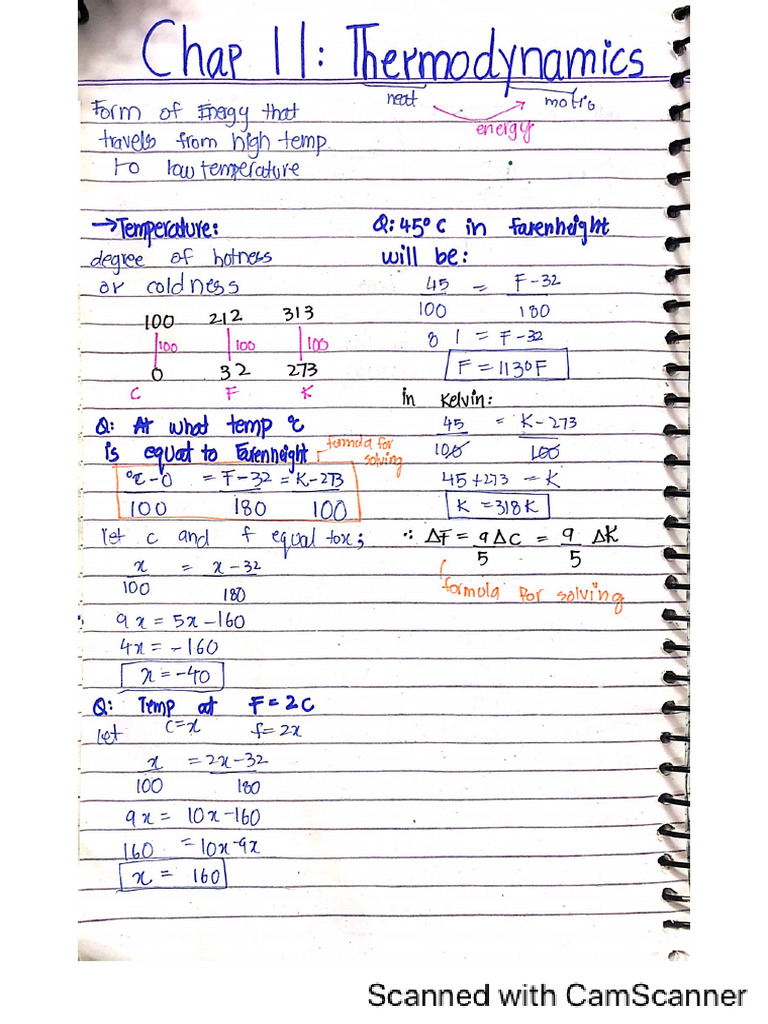 Chap 11: Thermodynamics
heat motio
energy
Form of Energy that
travels from high temp.
to low temperature
→Temperature:
degree of hotness
or coldness
100 212 313
100 100 100
0 32 273
C F K
Q: At what temp °c
is equal to Farenheight
formula for
solving
°C-0 = F-32 = K-273
100 180 100
let c and f equal to x;
x = x-32
100 180
9x = 5x-160
4x = -160
x = -40
Q: Temp at F=2C
let c=x f=2x
x = 2x-32
100 180
9x = 10x-160
160 = 10x-9x
x = 160
Q: 45° C in farenheight
will be:
45 = F-32
100 180
81 = F-32
F = 113°F
in Kelvin:
45 = K-273
100 100
45+273 = K
K = 318K
∴ ΔF = 9 ΔC = 9 ΔK
5 5
formula for solving
Scanned with CamScanner